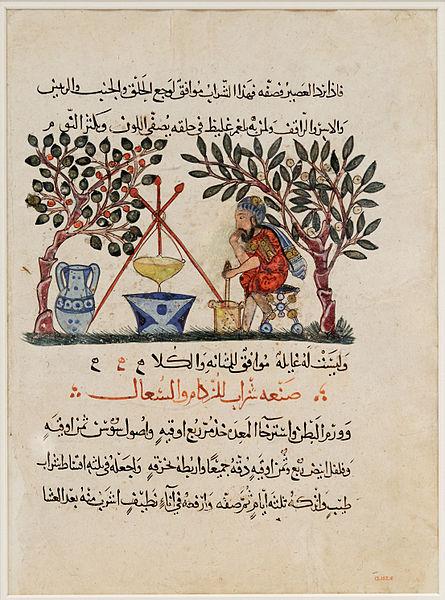 فاذا برد العصير فصفه فهذا الشراب موافق لوجع الحلق والجنب والرئتين
والاسر الراتف ولمن به بلغم غليظ في حلقه يصفى اللون ويكثر النوم
وليست له غايلة موافق للمثانة والكلا ح ح ح
صنعه شراب للزكام والسعال
وورم البطن واسترخا المعدة خذ مر ربع اوقيه واصول سوس ثمن اوقيه
وفلفل ابيض ربع وثمن اوقيه دقه جميعا واربطه بخرقه واجعله في ثلثه اقساط شراب
طيب واتركه ثلثه ايام ثم صفه وارفعه في اناء نظيف اشرب منه بعد العشا